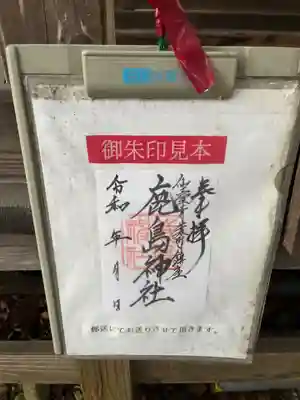 御朱印見本
奉拝
鹿島神社
令和 年 月 日
郵送にてお送りさせて頂きます。